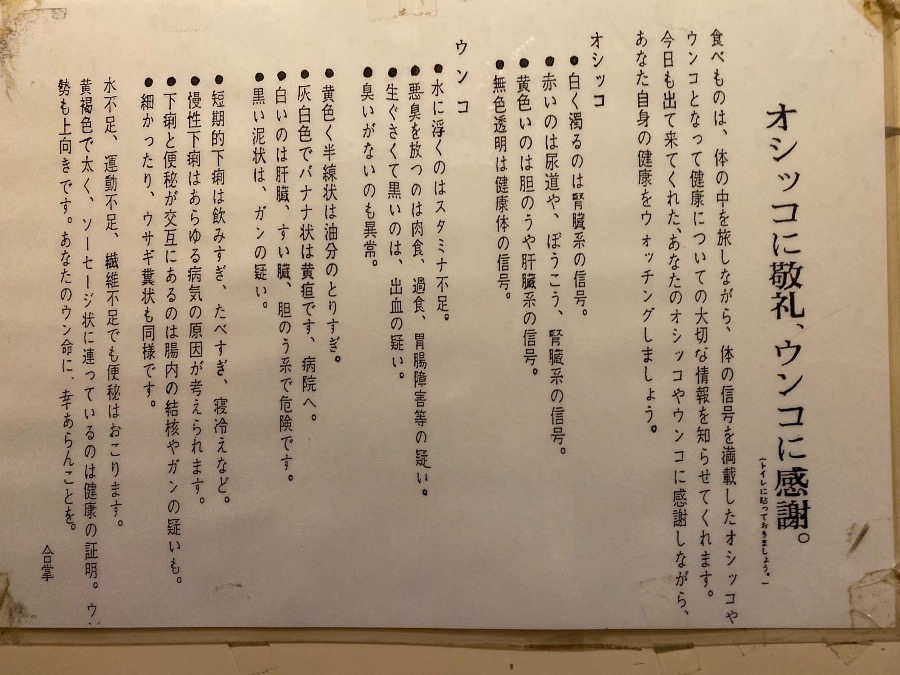 オシッコに敬礼、ウンコに感謝。
(トイレに貼っておきましょう。)
食べものは、体の中を旅しながら、体の信号を満載したオシッコや
ウンコとなって健康についての大切な情報を知らせてくれます。
今日も出て来てくれた、あなたのオシッコやウンコに感謝しながら、
あなた自身の健康をウォッチングしましょう。
オシッコ
●白く濁るのは腎臓系の信号。
●赤いのは尿道や、ぼうこう、腎臓系の信号。
●黄色いのは胆のうや肝臓系の信号。
●無色透明は健康体の信号。
ウンコ
●水に浮くのはスタミナ不足。
●悪臭を放つのは肉食、過食、胃腸障害等の疑い。
●生ぐさくて黒いのは、出血の疑い。
●臭いがないのも異常。
●黄色く半練状は油分のとりすぎ。
●灰白色でバナナ状は黄疸です、病院へ。
●白いのは肝臓、すい臓、胆のう系で危険です。
●黒い泥状は、ガンの疑い。
●短期的下痢は飲みすぎ、たべすぎ、寝冷えなど。
●慢性下痢はあらゆる病気の原因が考えられます。
●下痢と便秘が交互にあるのは腸内の結核やガンの疑いも。
●細かったり、ウサギ糞状も同様です。
水不足、運動不足、繊維不足でも便秘はおこります。
黄褐色で太く、ソーセージ状に連っているのは健康の証明。ウン
勢も上向きです。あなたのウン命に、幸あらんことを。
合掌